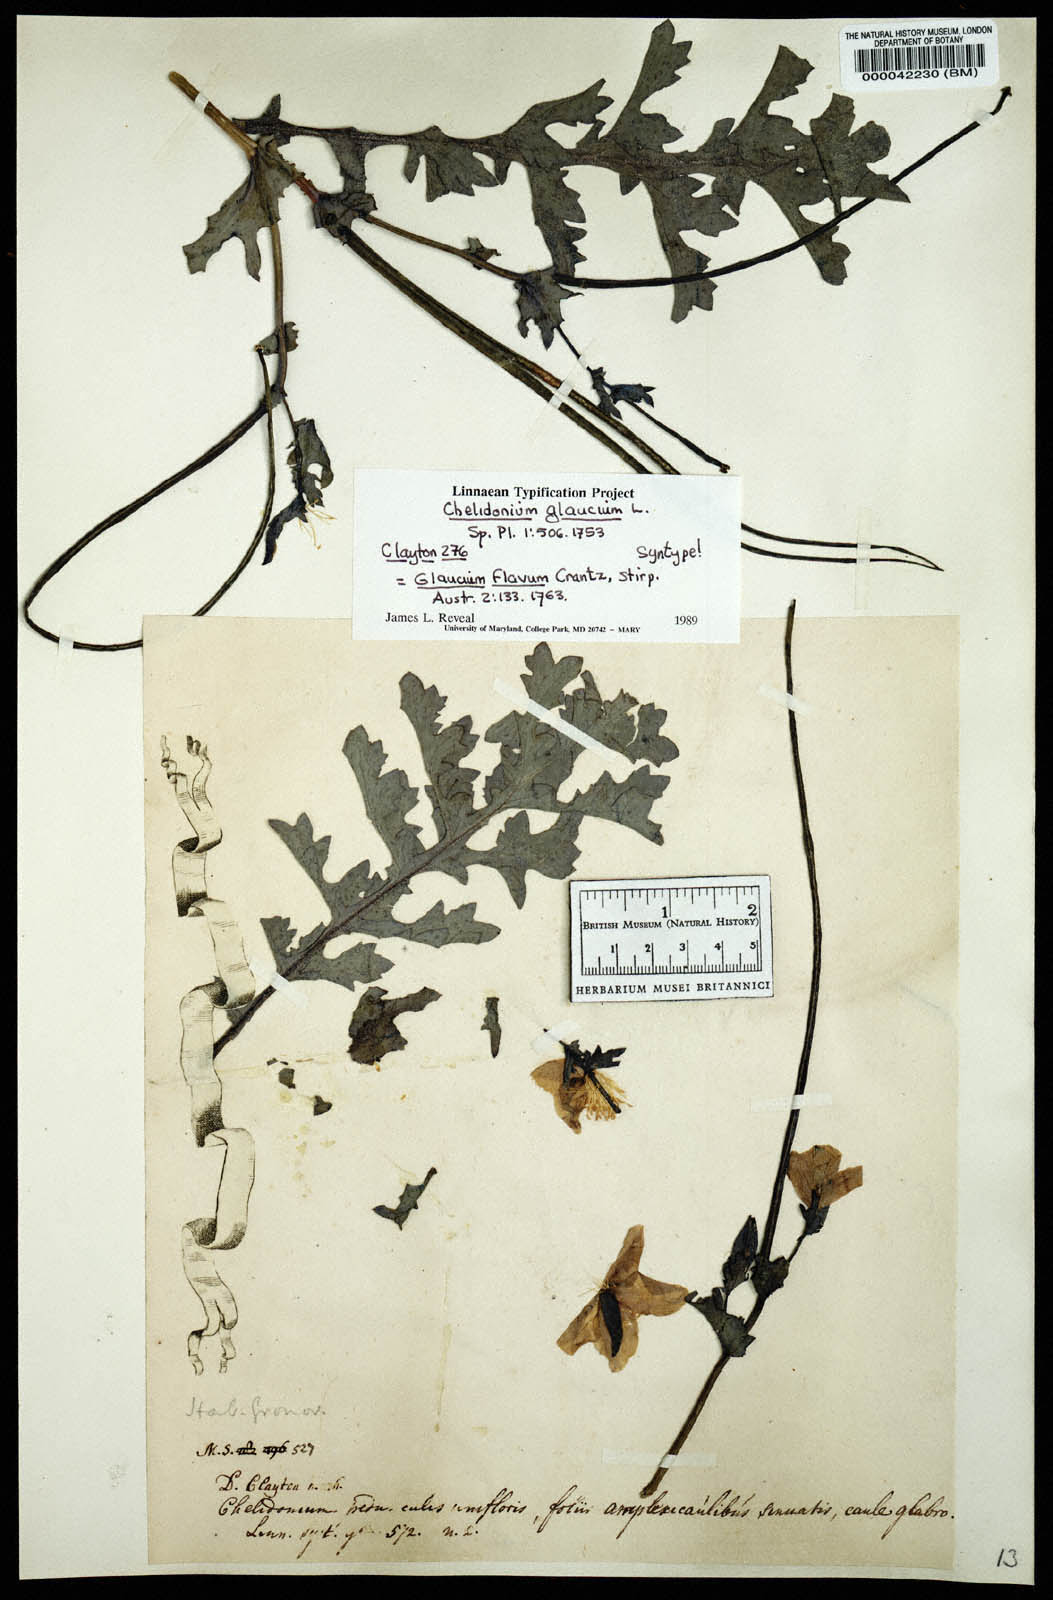 THE NATURAL HISTORY MUSEUM, LONDON
DEPARTMENT OF BOTANY
000042230 (BM)
Linnaean Typification Project
Chelidonium glaucium L.
Sp. Pl. 1:506. 1753
Clayton 276 Syntype!
= Glaucium flavum Crantz, Stirp.
Austr. 2:133. 1763.
James L. Reveal 1989
University of Maryland, College Park, MD 20742 – MARY
1 2
BRITISH MUSEUM (NATURAL HISTORY)
1 2 3 4 5
HERBARIUM MUSEI BRITANNICI
Hab. Gronov.
M.S. 527
D. Clayton n.
Chelidonium pedunculis unifloris, foliis amplexicaulibus sinuatis, caule glabro.
Linn. syst. 572. n. 2.
13